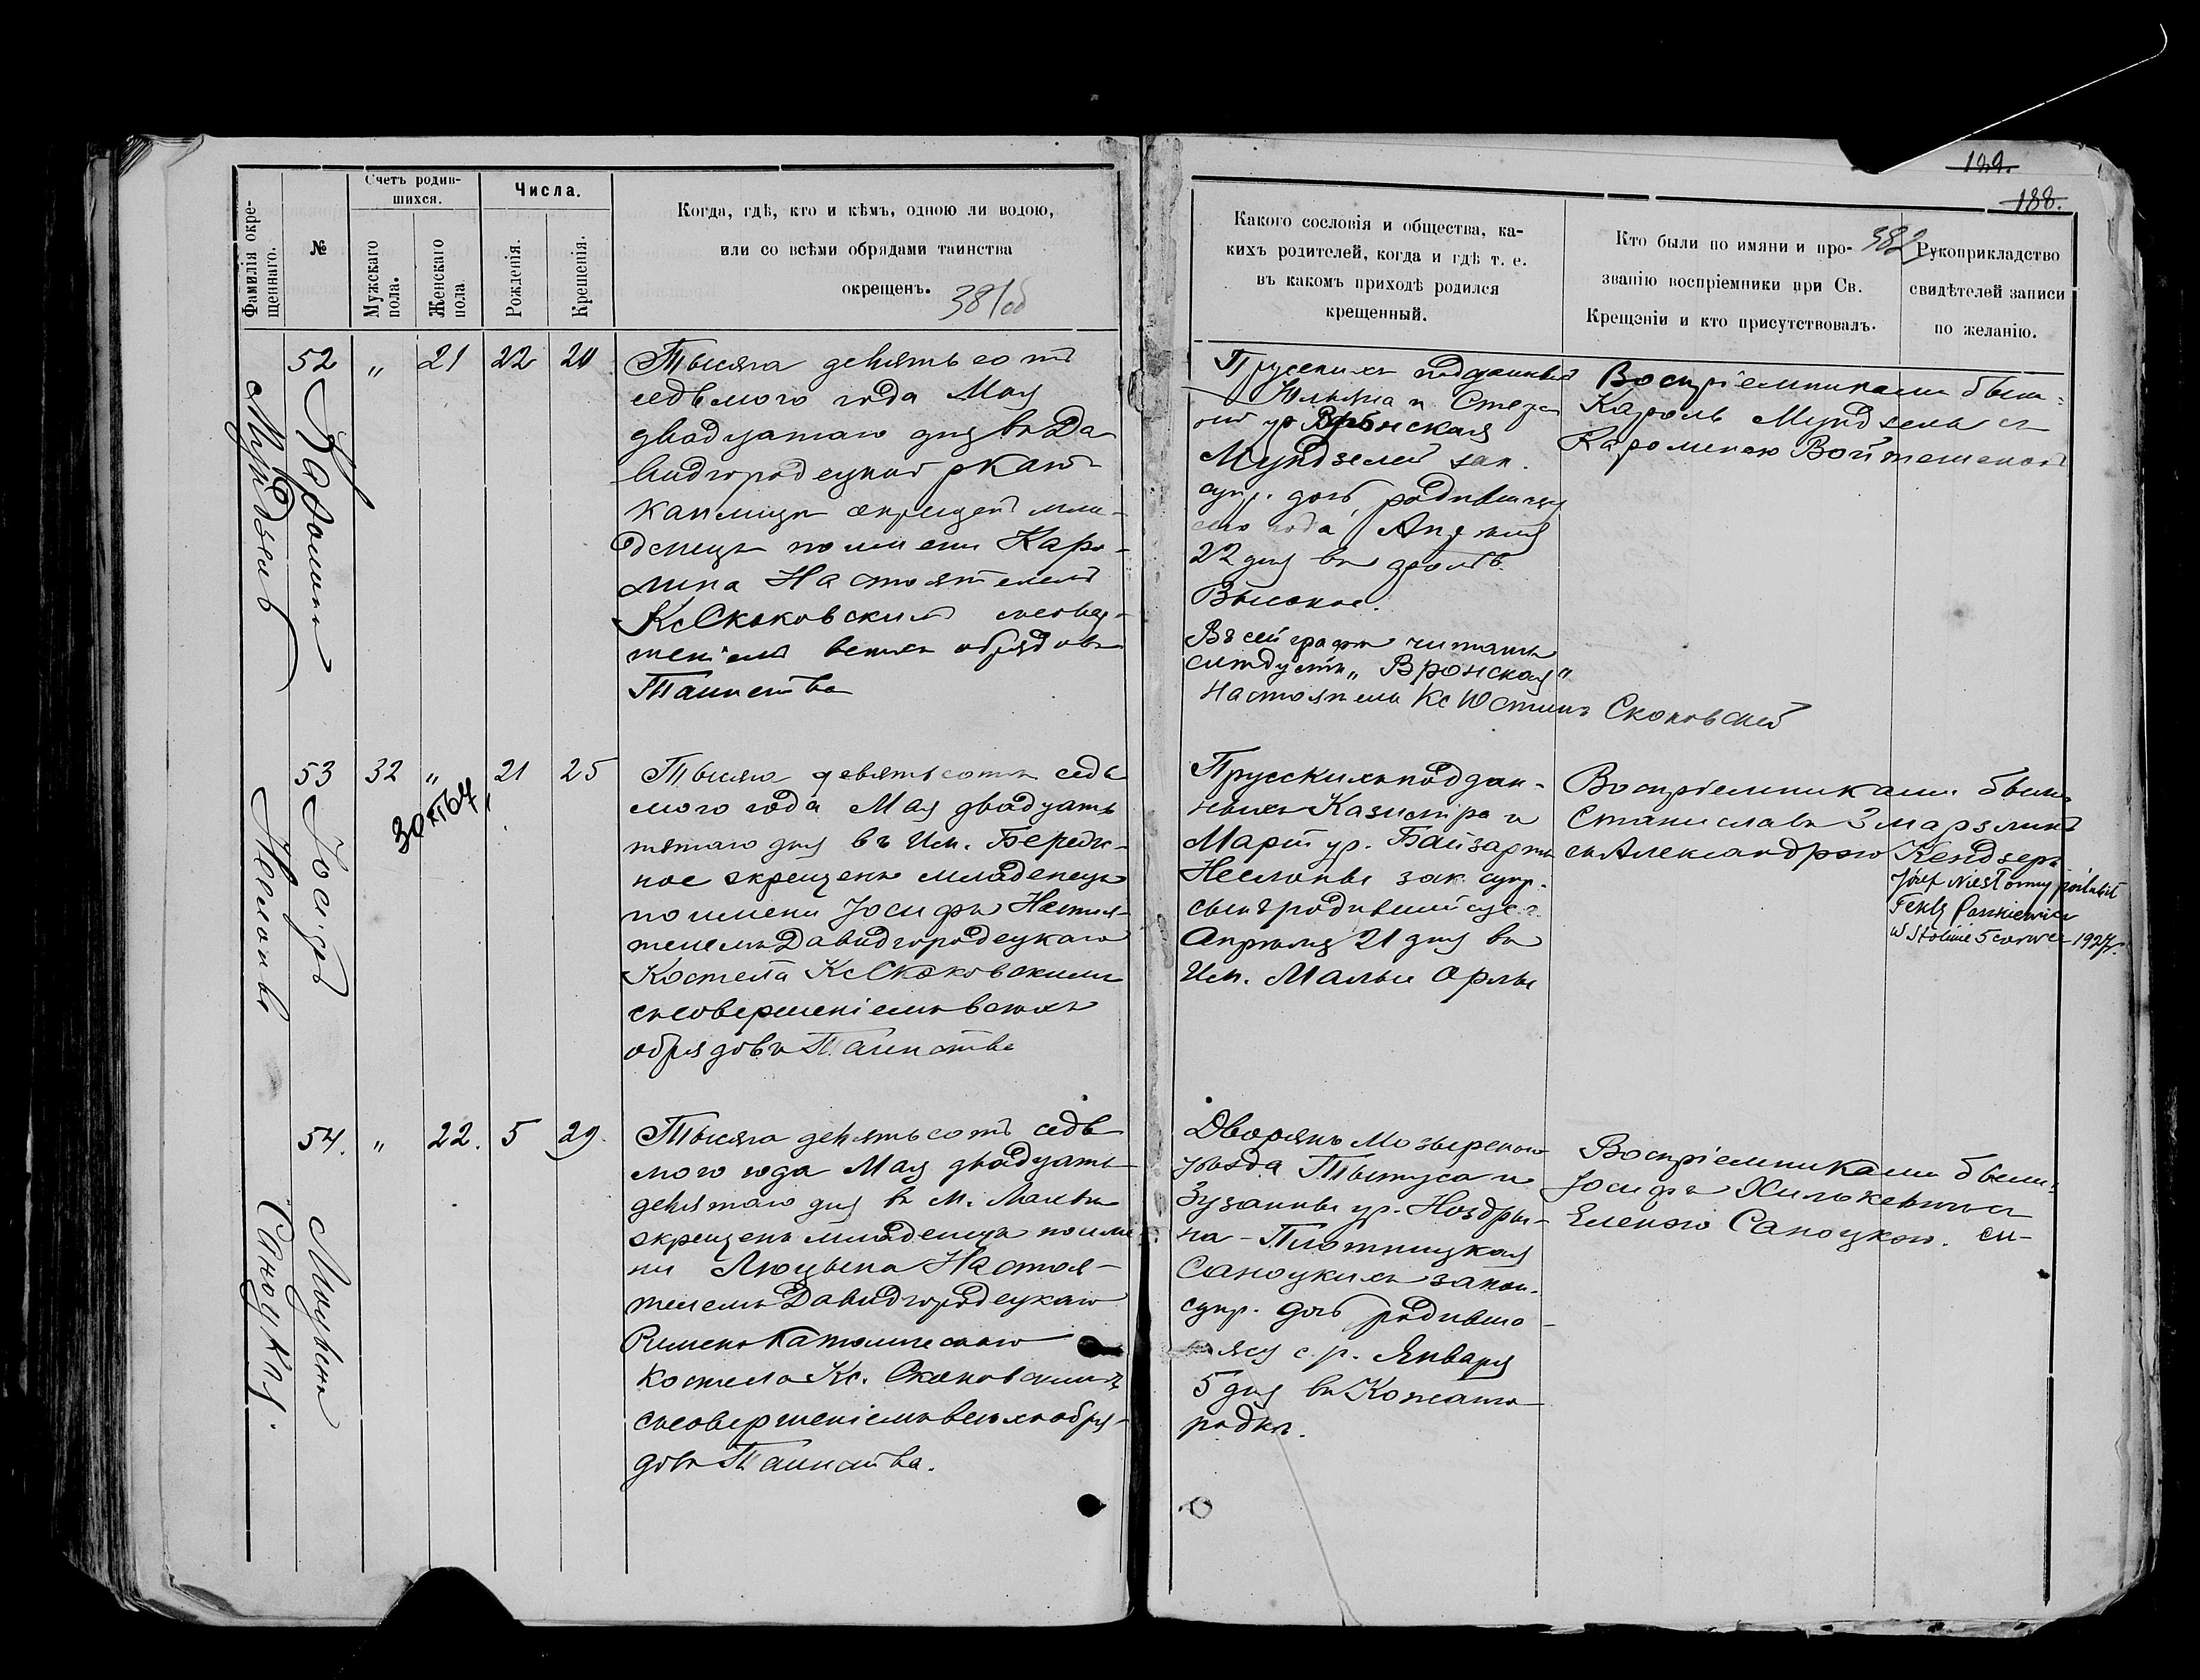 189.
188.
Фамилія окре-
щеннаго.
№
Счетъ родив-
шихся.
Мужскаго
пола.
Женскаго
пола
Числа.
Рожденія.
Крещенія.
Когда, гдѣ, кто и кѣмъ, одною ли водою,
или со всѣми обрядами таинства
окрещенъ.
38/об
Какого сословія и общества, ка-
кихъ родителей, когда и гдѣ т. е.
въ какомъ приходѣ родился
крещенный.
Кто были по имяни и про-
званію воспріемники при Св.
Крещэніи и кто присутствовалъ.
382
Рукоприкладство
свидѣтелей записи
по желанію.
Каролина
52 „ 21 22 20
Тысяча девятьсотъ
седьмого года Мая
двадцатаго дня въ Да
видгородецкой
каплицѣ окрещенъ мла-
денецъ по имени Каро-
лина Настоятелемъ
Кс Скоковскимъ
всѣхъ обрядовъ
Таинства
Прусскихъ подданныхъ
ур
Мундзелей зак.
супр. дочь родившаяся
сего года Апрѣля
22 дня въ
Высокое.
Въ сей графѣ читать
слѣдуетъ „Вронская"
Настоятель Кс Юстинъ Скоковскій
Воспріемниками были:
Кароль Мундзель съ
Каролиною
Несл
Іосифъ
53 32 „ 21 25
Тысяча девятьсотъ седь
мого года Мая двадцать
пятаго дня въ Им. Бережн-
ное окрещенъ младенецъ
по имени Іосифъ Настоя-
телемъ Давидгородецкаго
Костела Кс Скоковскимъ
съ совершеніемъ всѣхъ
обрядовъ Таинства
Прусскихъ поддан-
ныхъ Казиміра и
Маріи ур.
зак. супр.
сынъ родившійся с. г.
Апрѣля 21 дня въ
Им. Малые Орлы
Воспріемниками были
Станиславъ
съ Александрою Кендзеръ
Józef poślubił
Pankiewicz
w Stolinie 5 czerwca 1927 r.
Саноцкая.
Люцына
54. „ 22. 5 29.
Тысяча девятьсотъ седь
мого года Мая двадцать
девятаго дня въ М.
окрещенъ младенецъ по име
ни Люцына Настоя-
телемъ Давидгородецкаго
Римско Католическаго
костела Кс. Скоковскимъ
съ совершеніемъ всѣхъ обря-
довъ Таинства.
Дворянъ Мозырскаго
уѣзда Тытуса и
Зузанны ур. Ноздры-
на-Плотницкая
Саноцкихъ закон.
супр. дочь родивша-
яся с. г. Января
5 дня въ Кожанъ-
родкѣ.
Воспріемниками были:
Іосифъ Хилькевичъ
Еленою Саноцкою. съ-